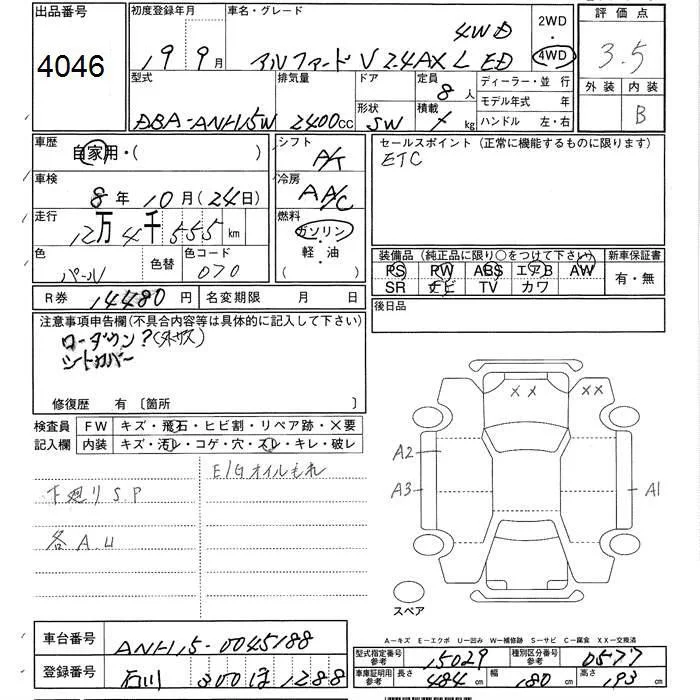 出品番号
4046
初度登録年月
19 9月
車名・グレード
4WD
アルファード V 2.4AX L ED
2WD
・
4WD
評価点
3.5
外装 内装
B
型式
DBA-ANH15W
排気量
2400cc
ドア
形状
SW
定員
8人
積載
kg
ディーラー・並行
モデル年式 年
ハンドル 左・右
車歴
自家用・( )
シフト
A/T
セールスポイント(正常に機能するものに限ります)
ETC
車検
8年 10月(24日)
冷房
AA/C
走行
12万4千555km
燃料
ガソリン
・
軽・油
( )
色
パール
色替
色コード
070
装備品(純正品に限り○をつけて下さい)
PS PW ABS エアB AW
SR ナビ TV カワ
新車保証書
有・無
R券 14480円
名変期限 月 日
後日品
注意事項申告欄(不具合内容等は具体的に記入して下さい)
ローダウン?
シートカバー
修復歴 有〔箇所
検査員
記入欄
FW キズ・飛石・ヒビ割・リペア跡・×要
内装 キズ・汚レ・コゲ・穴・スレ・キレ・破レ
E/Gオイルもれ
下廻りSP
各A.U
×× ××
A2
A3
A1
スペア
A-キズ E-エクボ U-凹み W-補修跡 S-サビ C-腐食 XX-交換済
車台番号
ANH15-0045188
登録番号
石川 300 ほ 1288
型式指定番号
参考
15029
種別区分番号
参考
0577
車庫証明用
参考
長さ
484cm
幅
180cm
高さ
193cm